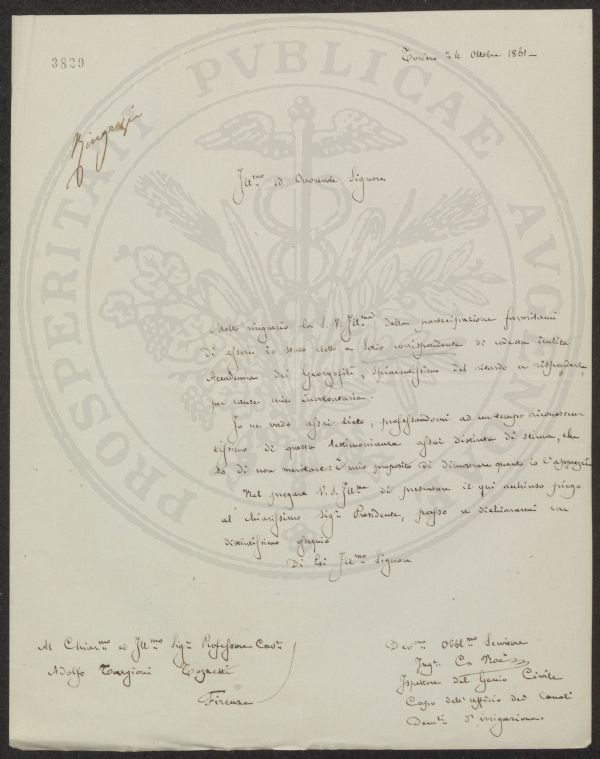 3829
Torino 24 Ottobre 1861 –
Ringrazia
Ill.mo ed Onorevole Signore
Molto ringrazio la S. V. Ill.ma della partecipazione favoritami
di essere io stato eletto a Socio corrispondente di codesta inclita
Accademia dei Georgofili, spiacentissimo del ritardo a risponderle,
per cause mie involontarie.
Io ne vado assai lieto, professandomi ad un tempo riconoscen-
tissimo di questa testimonianza assai distinta di stima, che
so di non meritare: È mio proposito di dimostrare quanto io l'apprezzi.
Nel pregare V. S. Ill.ma di presentare il qui anchiuso piego
al chiarissimo Sig.r Presidente, passo a dichiararmi con
distintissimo ossequio
Di Lei Ill.mo Signore
Al Chiar.mo ed Ill.mo Sig.r Professore Cav.re
Adolfo Targioni Tozzetti
Firenze
Dev.mo Obbl.mo Servitore
Ing.e C. Noè
Ispettore del Genio Civile
Capo dell'uffizio dei Canali
Dem.li d'irrigazione
PROSPERITATI PVBLICAE AVGENDAE